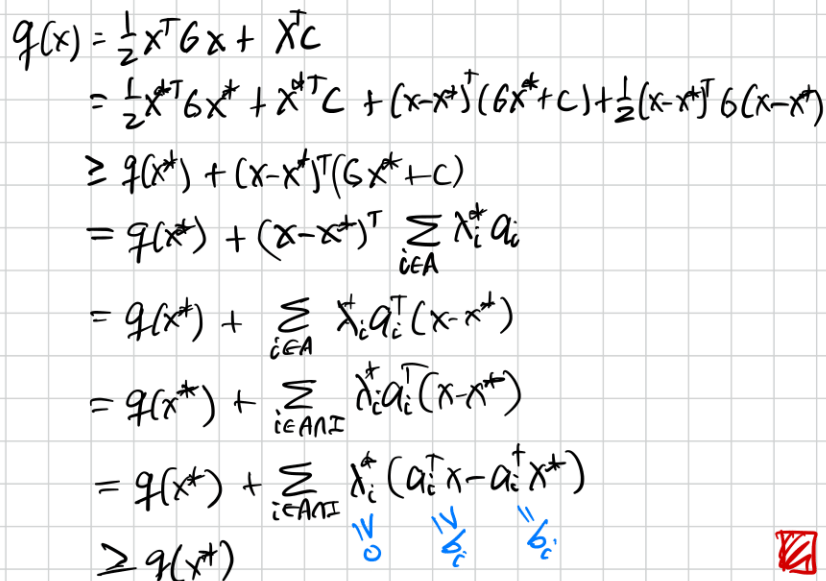 q(x) = ½ xᵀGx + xᵀc
= ½ x*ᵀGx* + x*ᵀc + (x-x*)ᵀ(Gx*+c) + ½(x-x*)ᵀG(x-x*)
≥ q(x*) + (x-x*)ᵀ(Gx*+c)
= q(x*) + (x-x*)ᵀ Σ_{i∈A} λᵢ* aᵢ
= q(x*) + Σ_{i∈A} λᵢ* aᵢᵀ(x-x*)
= q(x*) + Σ_{i∈A∩I} λᵢ* aᵢᵀ(x-x*)
= q(x*) + Σ_{i∈A∩I} λᵢ* (aᵢᵀx - aᵢᵀx*)
≥ 0 ≥ bᵢ = bᵢ
≥ q(x*)